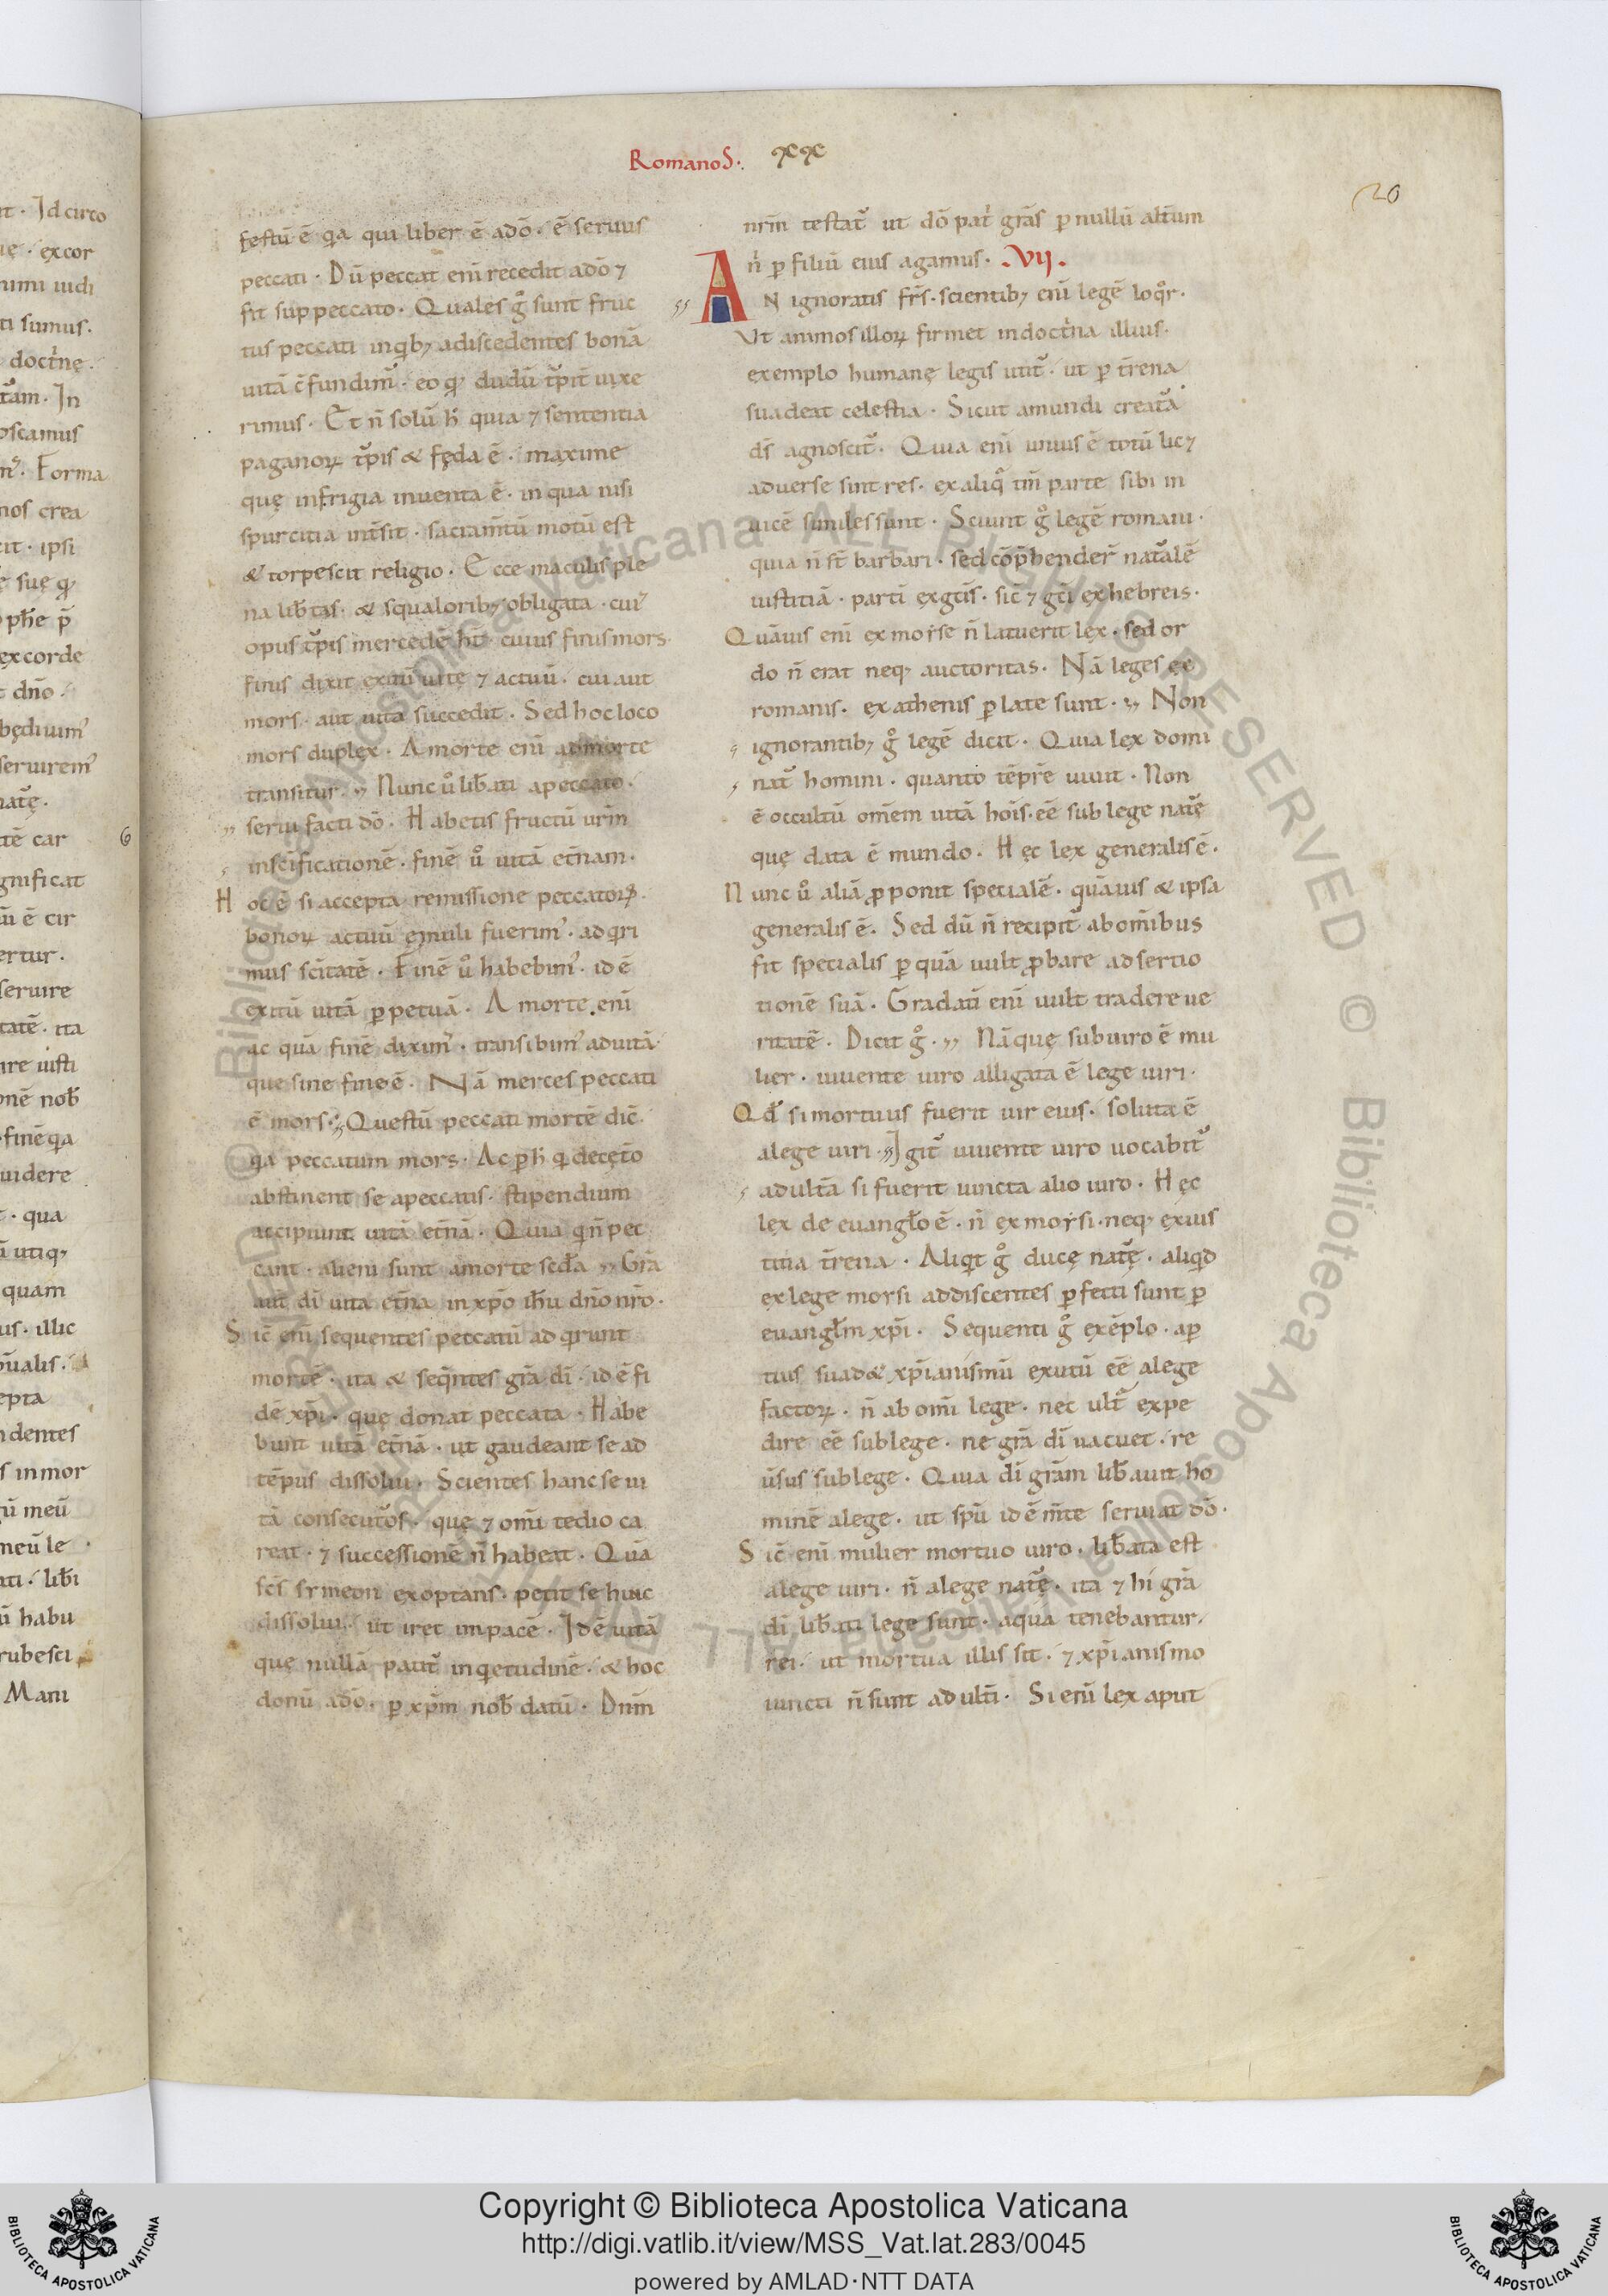 Romanos.
xx
20
festū ē q̇a qui liber ē a dō. ē seruus
peccati. Dū peccat eni̅ recedit a dō ⁊
fit sup peccato. Quales gͦ sunt fruc
tus peccati inqͥb; adiscedentes bonā
uitā c̄fundimꝰ. eo qd̕ dudū tꝰpit̕ uixe
rimus. Et n̄ solū h̄ quia ⁊ sententia
paganoꝝ tꝰpis & fęda ē. maxime
quę infrigia inuenta ē. in qua nisi
spurcitia int̄sit. sacram̄tū motū est
& torpescit religio. Ecce maculis ple
na lib̄tas. & squaloribȝ obligata. cuiꝰ
opus tꝰpis mercedē h̄t. cuius finis mors.
finis dixit exitū uitę ⁊ actuū. cui aut
mors. aut uita succedit. Sed hoc loco
mors duplex. A morte eni̅ ad morte
transitur. Nunc uͦ lib̄ati a peccato.
serui facti dō. Habetis fructū ur̄m
in sc̄ificationē. finē uͦ uitā et̄nam.
Hoc ē si accepta remissione peccatoꝝ.
bonoꝝ actuū ęmuli fuerimꝰ. adqͥri
mus sc̄itatē. Finē uͦ habebimꝰ. id ē
exitū uitā ꝑpetuā. A morte eni̅
ac quā finē diximꝰ. transibimꝰ ad uitā.
que sine fine ē. Nā merces peccati
ē mors. Questū peccati mortē dic̄.
q̇a peccatum mors. Ac ꝑ h̄ qͥ decęt̄o
abstinent se a peccatis. stipendium
accipiunt uitā et̄nā. Quia qͥ n̄ pec
cant. alieni sunt a morte sc̄da. Gr̄a
aut̄ dī uita et̄na in xp̄o ih̄u dn̄o nr̄o.
Sic̄ eni̅ sequentes peccatū adqͥrunt
mortē. ita & seq̄ntes gr̄ā dī. id ē fi
dē xp̄i. quę donat peccata. Habe
bunt uitā et̄nā. ut gaudeant se ad
tēpus dissolui. Scientes hanc se ui
tā consecutꝰos. quę ⁊ om̄i tedio ca
reat. ⁊ successionē n̄ habeat. Quā
sc̄s symeon exoptans. petit se huic
dissolui. ut iret in pacē. Id ē uitā
que nullā patitꝰ inqͥetudinē. & hoc
donū a dō. ꝑ xp̄m nob̄ datū. Dn̄m
nr̄m testatꝰ ut dō patͥ gr̄as ꝑ nullū alt̄um
nͥ ꝑ filiū eius agamus. VII.
AN ignoratis fr̄s. scientibȝ eni̅ legē loqͦr.
Ut animos illoꝝ firmet in doctͥna illius.
exemplo humanę legis utitꝰ. ut ꝑ t̄rena
suadeat celestia. Sicut a mundi creatꝰa
ds̄ agnoscitꝰ. Quia eni̅ unus ē totū lic⁊
aduerse sint res. ex aliqͦ tm̄ parte sibi in
uicē similes sunt. Sciunt gͦ legē romani.
quia n̄ st̄ barbari. sed cōp̄hender̄ natꝰalē
iustitiā. parti̅ ex gc̄is. sic̄ ⁊ gc̄i ex hebreis.
Quāuis eni̅ ex morse n̄ latuerit lex. sed or
do n̄ erat neq; auctoritas. Nā leges ęę
romanis. ex athenis ꝑlate sunt. Non
ignorantibȝ gͦ legē dicit. Quia lex domi
natꝰ homini. quanto tēpr̄e uiuit. Non
ē occultū om̄em uitā hoīs. eē sub lege natꝰę
quę data ē mundo. Hęc lex generalis ē.
Nunc uͦ aliā ꝓponit specialē. quāuis & ipsa
generalis ē. Sed dū n̄ recipitꝰ ab om̄ibus
fit specialis ꝑ quā uult ꝓbare adsertio
tionē suā. Gradati̅ eni̅ uult tradere ue
ritatē. Dicit gͦ. Nā quę sub uiro ē mu
lier. uiuente uiro alligata ē lege uiri.
Qd̄ si mortuus fuerit uir eius. soluta ē
a lege uiri. Igitꝰ uiuente uiro uocabitꝰ
adult̄a si fuerit iuncta alio uiro. Hęc
lex de euangl̄o ē. n̄ ex morsi. neq; ex ius
titia t̄rena. Aliqͥt gͦ ducę natꝰę. aliqͥd
ex lege morsi addiscentes ꝑfecti sunt ꝑ
euangl̄m xp̄i. Sequenti gͦ exēplo. aꝑ
tius suad& xp̄ianismū exutū eē a lege
factoꝝ. n̄ ab om̄i lege. nec ult̄ͥ expe
dire eē sub lege. ne gr̄ā dī uacuet. re
ūsus sub lege. Quia dī gr̄am lib̄auit ho
minē a lege. ut spū id ē m̄te seruiat dō.
Sic̄ eni̅ mulier mortuo uiro. lib̄ata est
a lege uiri. n̄ a lege natꝰę. ita ⁊ hi gr̄a
dī lib̄ati lege sunt. a qua tenebantur
rei. ut mortua illis sit. ⁊ xp̄ianismo
iuncti n̄ sunt adult̄i. Si eni̅ lex aput
Copyright © Biblioteca Apostolica Vaticana
http://digi.vatlib.it/view/MSS_Vat.lat.283/0045
powered by AMLAD·NTT DATA
BIBLIOTECA APOSTOLICA VATICANA
BIBLIOTECA APOSTOLICA VATICANA